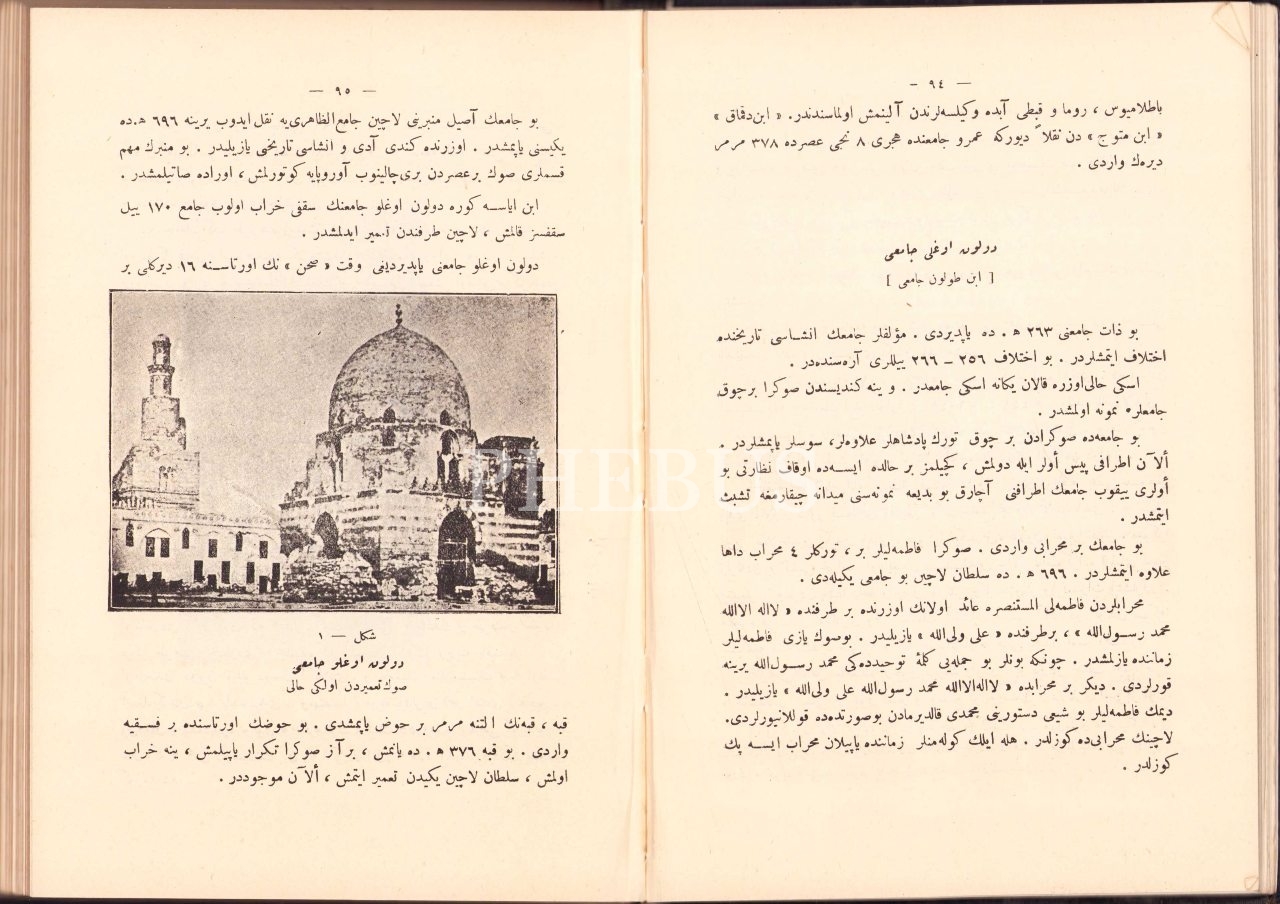 — ٩٤ —
باطلامیوس ، روما و قبطی آبده وكلیسه‌لرندن آلینمش اولماسندندر. « ابن دقماق »
« ابن متوج » دن نقلاً دیوركه عمرو جامعنده هجری ٨ نجی عصرده ٣٧٨ مرمر
دیرەك واردی .
دولون اوغلی جامعی
[ ابن طولون جامعی ]
بو ذات جامعنی ٢٦٣ ھ . ده یاپدیردی . مؤلفلر جامعك انشاسی تاریخنده
اختلاف ایتمشلردر . بو اختلاف ٢٥٦ – ٢٦٦ ییللری آره‌سنده‌در .
اسكی حالی‌اوزره قالان یكانه اسكی جامعدر . و ینه كندیسندن صوكرا برچوق
جامعلره نمونه اولمشدر .
بو جامعه‌ده صوكرادن بر چوق تورك پادشاهلر علاوه‌لر، سوسلر یاپمشلردر .
ألآن اطرافی پیس أولر ایله دولمش ، كچیلمز بر حالده ایسه‌ده اوقاف نظارتی بو
أولری ییقوب جامعك اطرافنی آچارق بو بدیعه نمونه‌سنی میدانه چیقارمغه تشبث
ایتمشدر .
بو جامعك بر محرابی واردی . صوكرا فاطمه‌لیلر بر ، توركلر ٤ محراب داها
علاوه ایتمشلردر . ٦٩٦ ھ . ده سلطان لاچین بو جامعی یكیله‌دی .
محرابلردن فاطمه‌لی المستنصره عائد اولانك اوزرنده بر طرفنده « لااله الاالله
محمد رسول‌الله » ، برطرفنده « علی ولی‌الله » یازیلیدر . بوصوك یازی فاطمه‌لیلر
زماننده یازلمشدر . چونكه بونلر بو جمله‌یی كلمهٔ توحیدده‌كی محمد رسول‌الله یرینه
قورلردی . دیكر بر محرابده « لااله‌الاالله محمد رسول‌الله علی ولی‌الله » یازیلیدر .
دیمك فاطمه‌لیلر بو شیعی دستورینی محمدی قالدیرمادن بوصورتده‌ده قوللانیورلردی.
لاچینك محرابی‌ده كوزلدر . هله ایلك كوله‌منلر زماننده یاپیلان محراب ایسه پك
كوزلدر .
— ٩٥ —
بو جامعك آصیل منبرینی لاچین جامع‌الظاهری‌یه نقل ایدوب یرینه ٦٩٦ ھ.ده
یكیسنی یاپمشدر . اوزرنده كندی آدی و انشاسی تاریخی یازیلیدر . بو منبرك مهم
قسملری صوك بر عصردن بری چالینوب آوروپایه كوتورلمش ، اوراده صاتیلمشدر .
ابن ایاسه كوره دولون اوغلو جامعنك سقفی خراب اولوب جامع ١٧٠ ییل
سقفسز قالمش ، لاچین طرفندن تعمیر ایدلمشدر .
دولون اوغلو جامعنی یاپدیردیغی وقت « صحن » نك اورتاسنه ١٦ دیركلی بر
شكل — ١
دولون اوغلو جامعی
صوك تعمیردن اولكی حالی
قبه ، قبه‌نك التنه مرمر بر حوض یاپمشدی . بو حوضك اورتاسنده بر فسقیه
واردی . بو قبه ٣٧٦ ھ . ده یانمش ، بر آز صوكرا تكرار یاپیلمش ، ینه خراب
اولمش ، سلطان لاچین یكیدن تعمیر ایتمش ، ألآن موجوددر .
PHEBUS